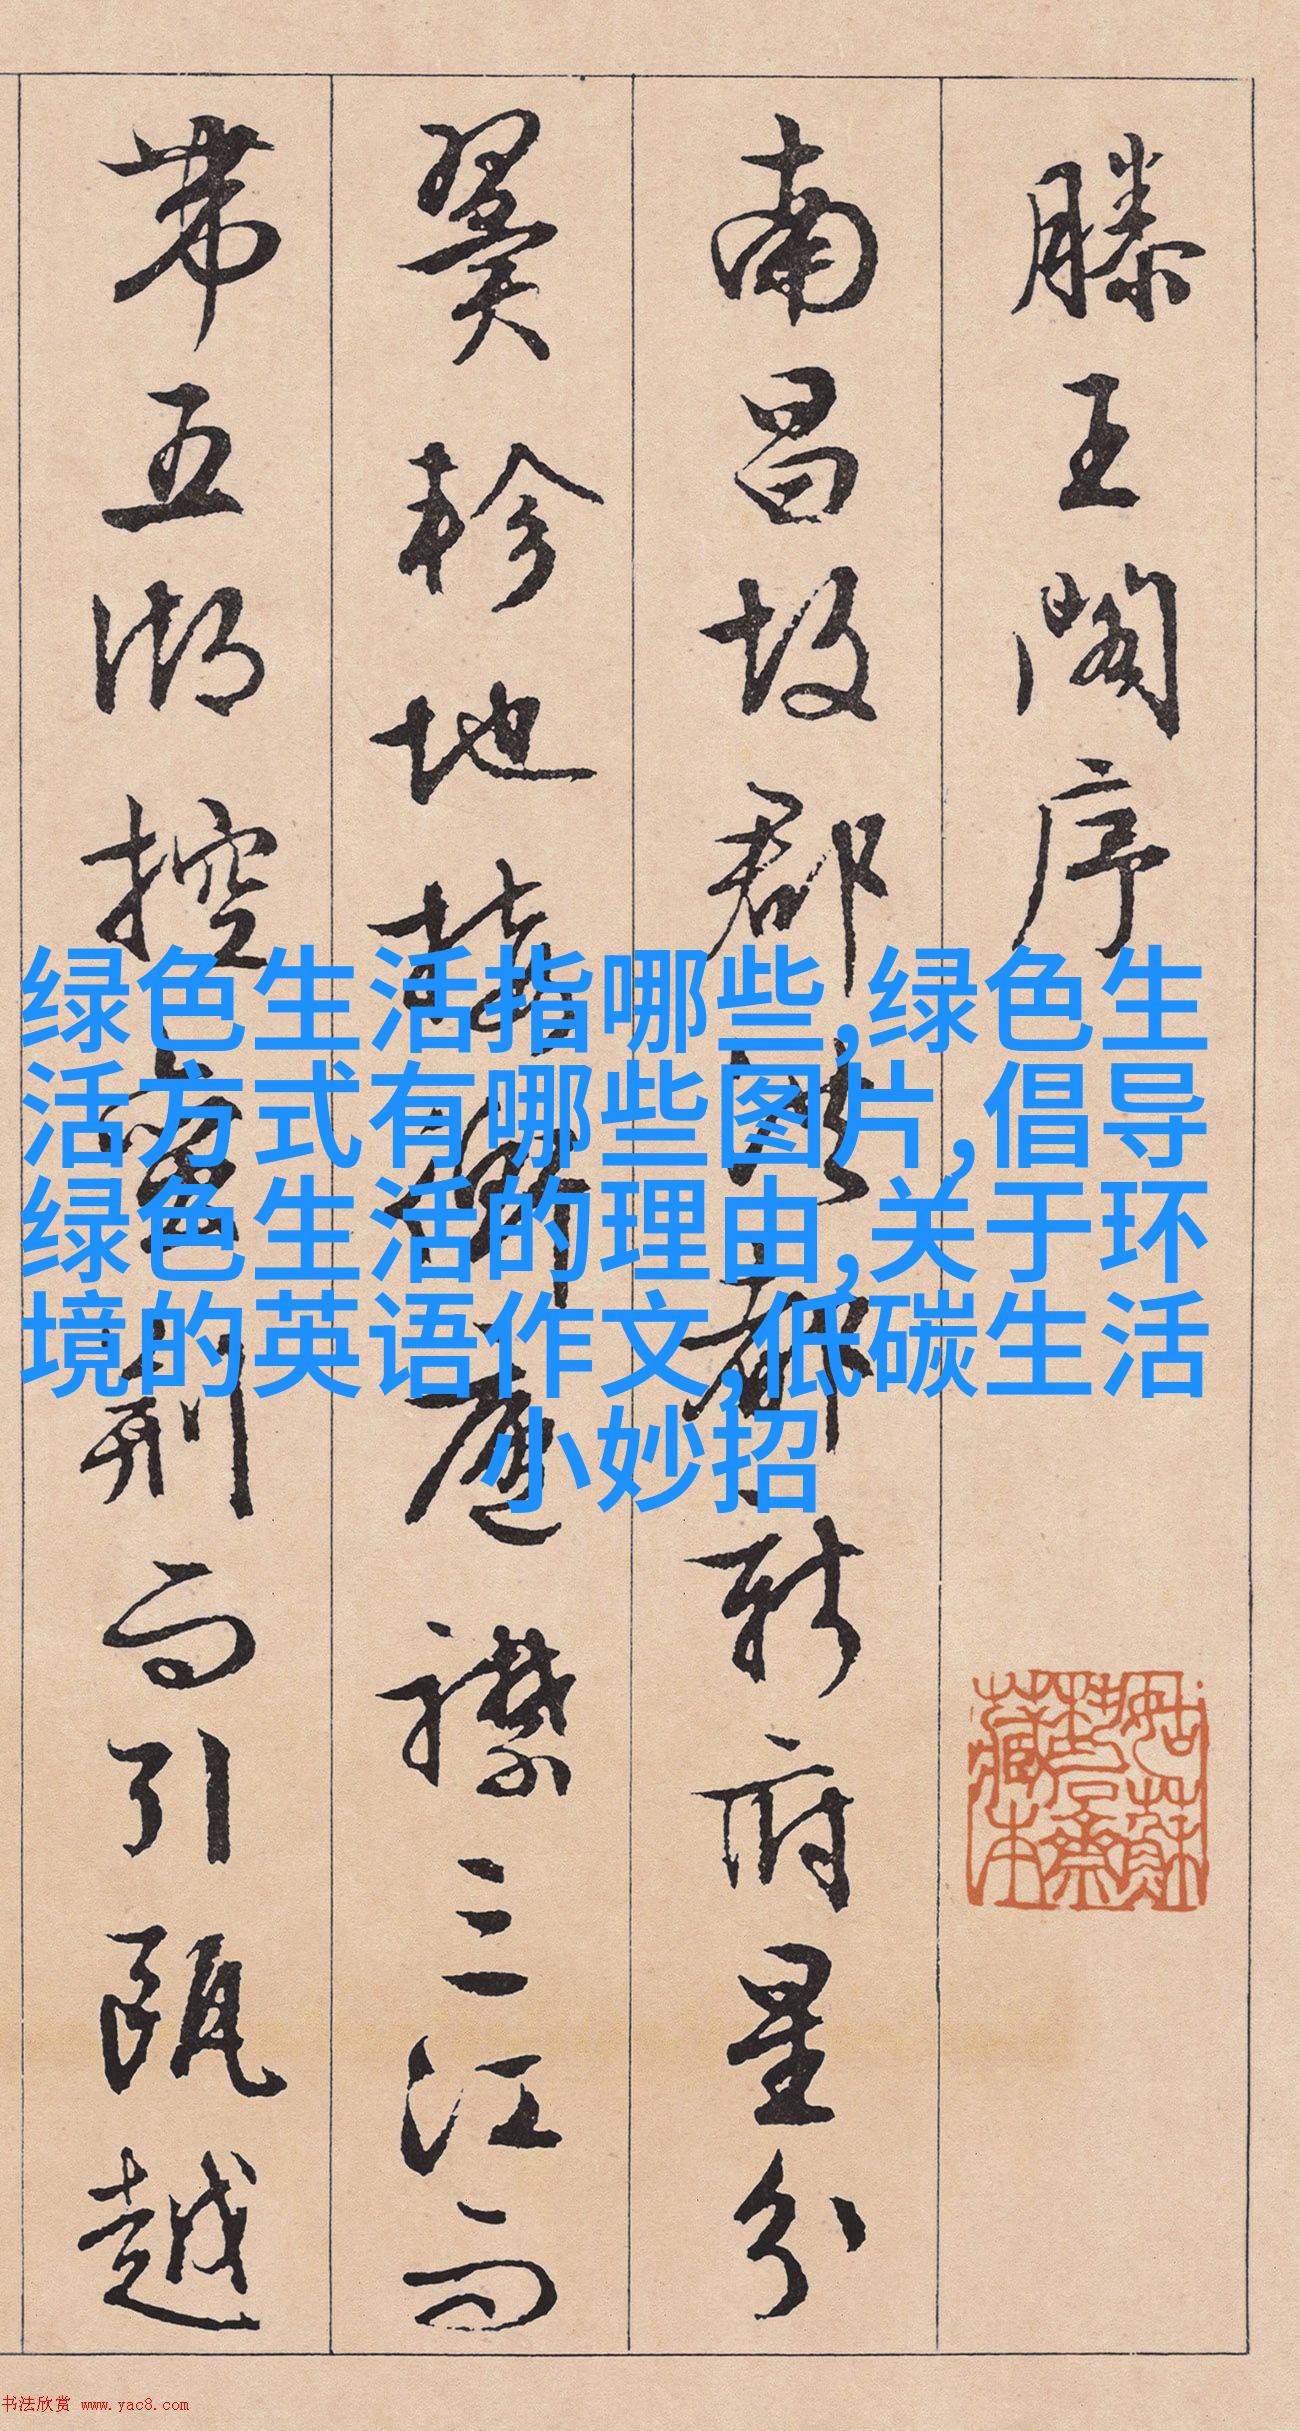 滕王閣序
南昌故郡洪都新府星分
翼軫地接衡廬襟三江而
帶五湖控蠻荊而引甌越
绿色生活指哪些,绿色生
活方式有哪些图片,倡导
绿色生活的理由,关于环
境的英语作文,低碳生活
小妙招
姑蘇
藏本
书法欣赏 www.yac8.com